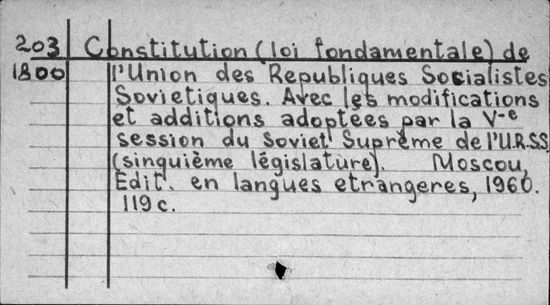 203 Constitution (loi fondamentale) de
1800 l'Union des Republiques Socialistes
Sovietiques. Avec les modifications
et additions adoptées par la V-e
session du Soviet Suprême de l'U.R.S.S.
(sinquième législature). Moscou,
Edit. en langues etrangeres, 1960.
119 c.